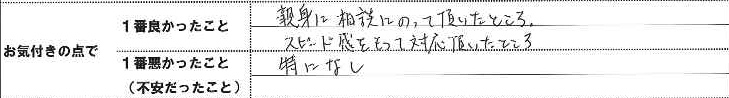 お気付きの点で
1番良かったこと
親身に相談にのって頂いたところ。
スピード感をもって対応頂いたところ
1番悪かったこと
（不安だったこと）
特になし